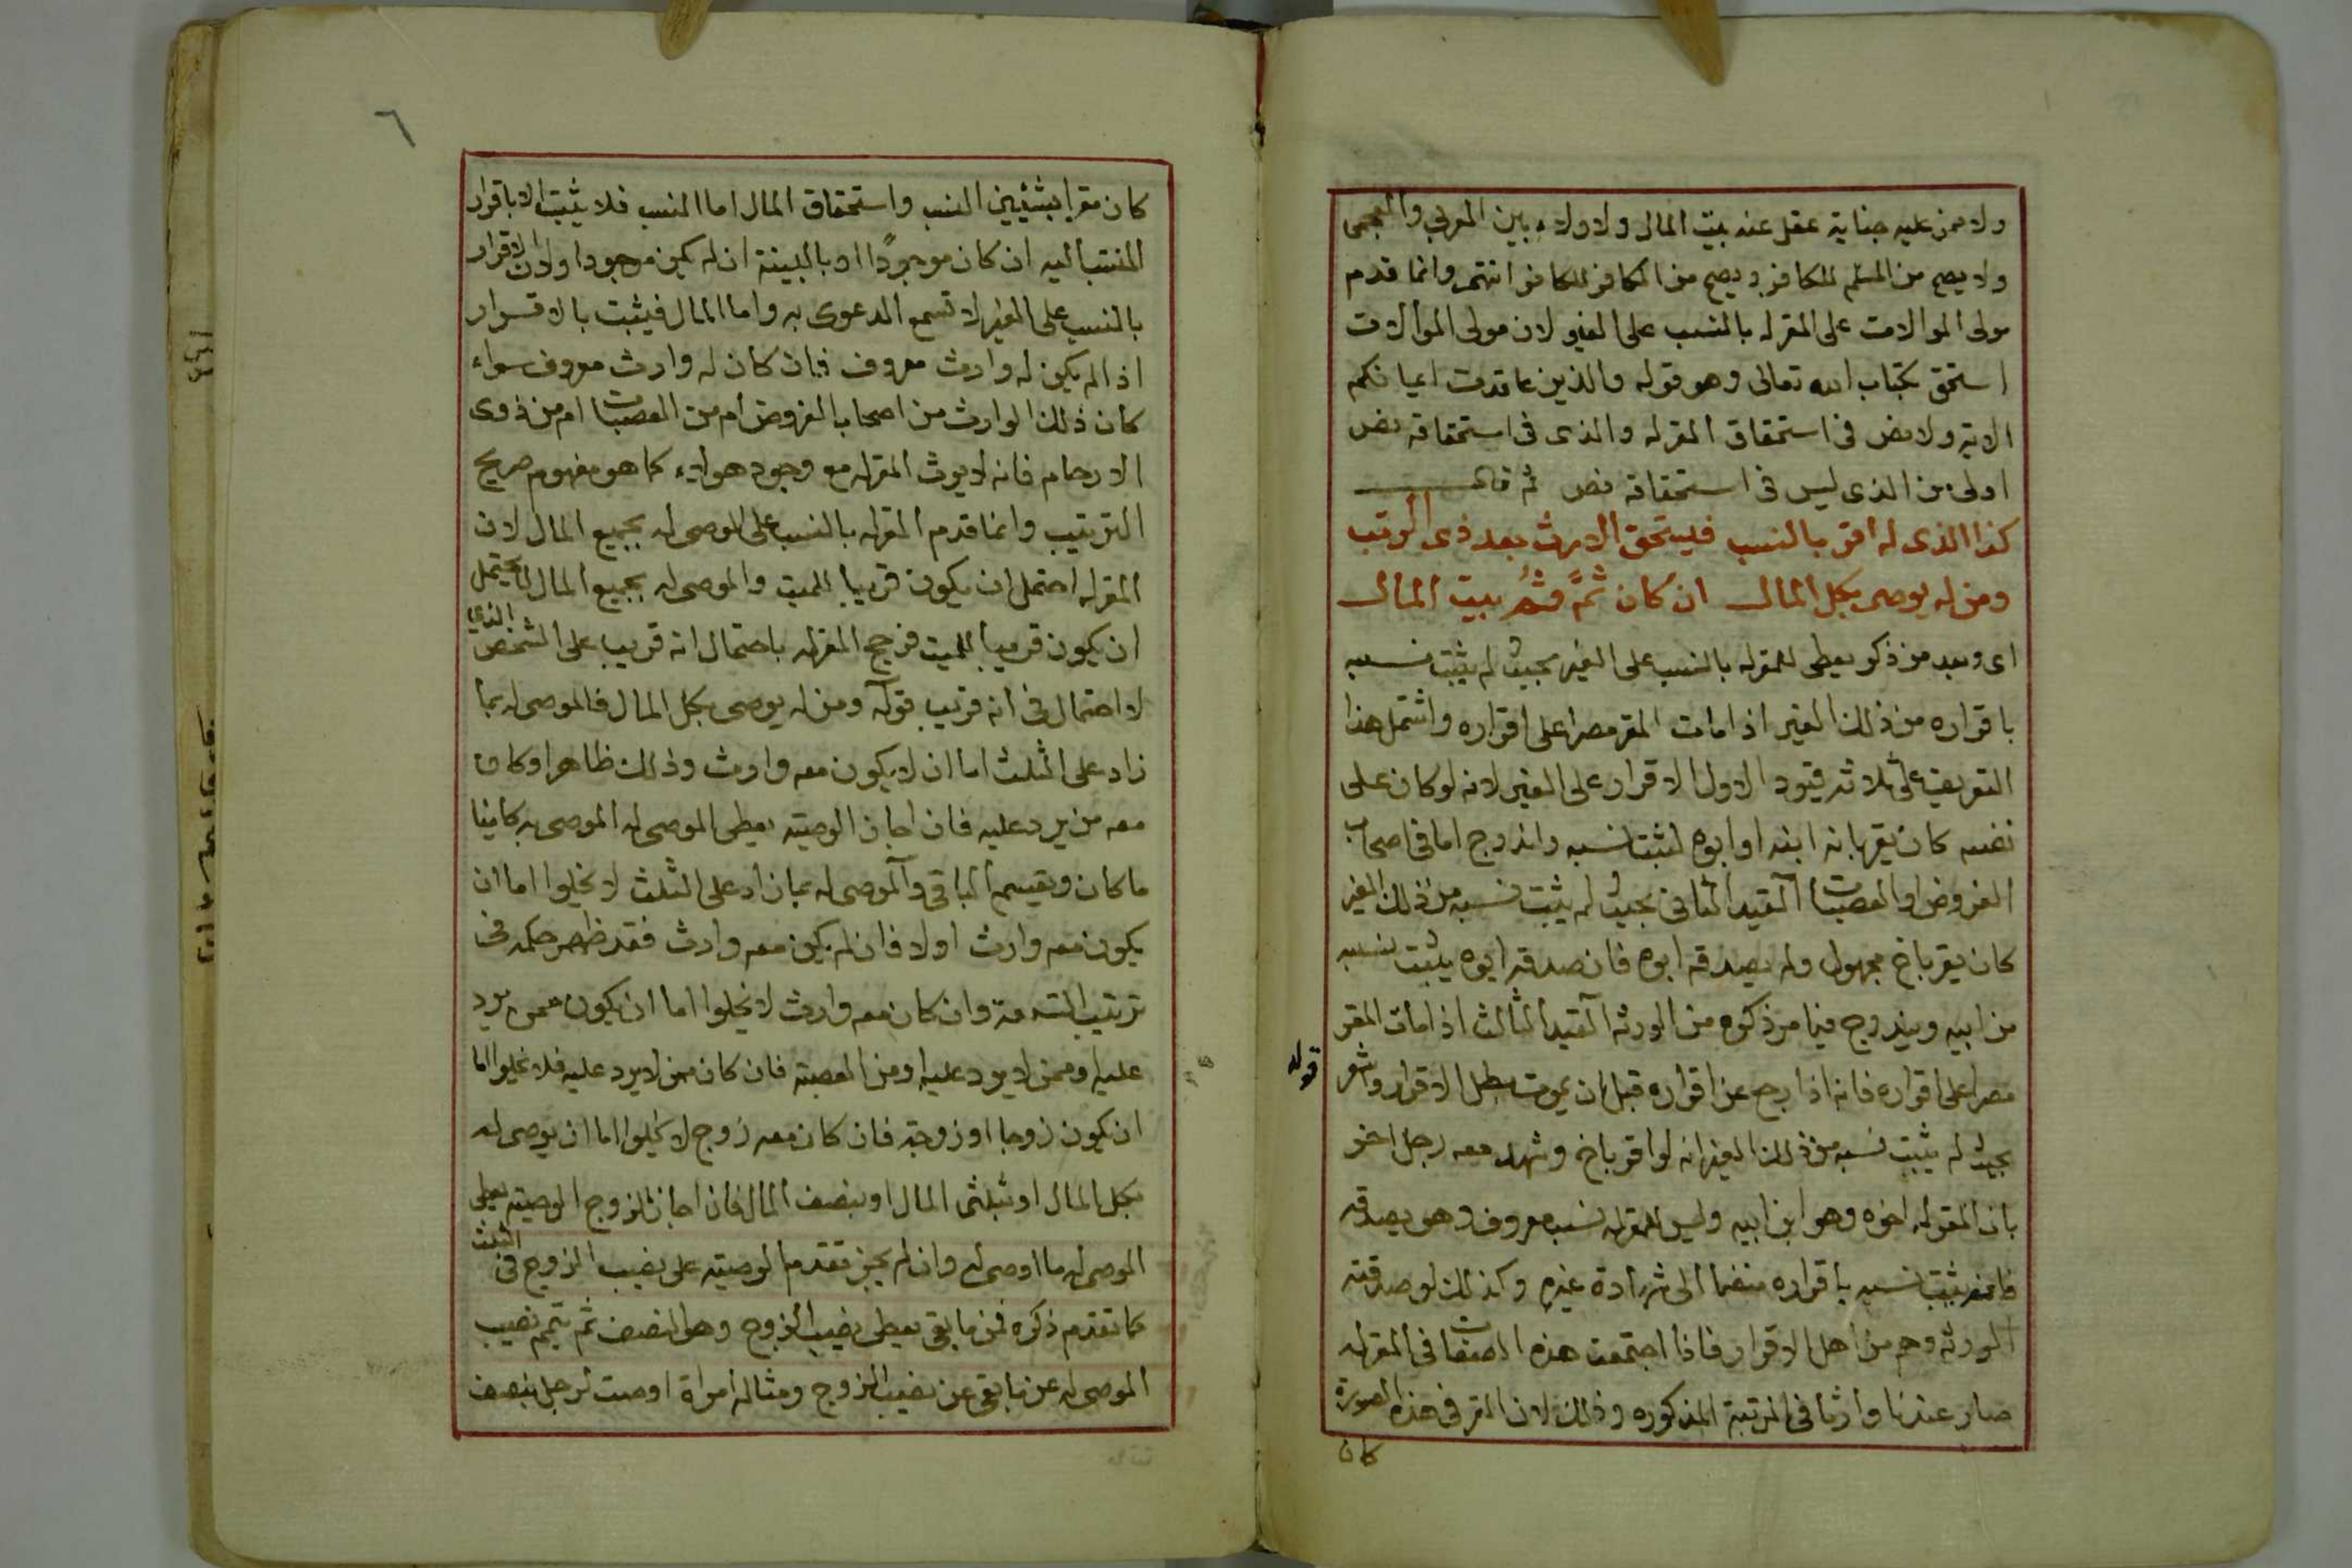 ولا ممن عليه جناية عقل عنه بيت المال ولا ولاء بين العربي والعجمى
ولا يصح من المسلم للكافر ويصح من الكافر للكافر انتهى وانما قدم
مولى الموالات على المقر له بالنسب على الغير لان مولى الموالات
استحق بكتاب الله تعالى وهو قوله والذين عاقدت ايمانكم
الاية ولا نص فى استحقاق المقر له والذى فى استحقاقه نص
اولى من الذى ليس فى استحقاقه نص ثم قال
كذا الذى له اقر بالنسب فليستحق الارث بعد ذى الرتب
ومن له يوصى بكل المال ان كان ثم بيت المال
اى وبعد من ذكر يعطى للمقر له بالنسب على الغير بحيث لم يثبت نسبه
باقراره من ذلك الغير اذا مات المقر مصرا على اقراره واشتمل هذا
التعريف على ثلاثة قيود الاول الاقرار على الغير لانه لو كان على
نفسه كان يقر بانه ابنه او ابوه لثبت نسبه واندرج اما فى اصحاب
الفروض او العصبات القيد الثانى بحيث لم يثبت نسبه من ذلك الغير
كان يقر باخ مجهول ولم يصدقه ابوه فان صدقه ابوه يثبت نسبه
من ابيه ويندرج فيما مر ذكره من الورثه القيد الثالث اذا مات المقر
مصرا على اقراره فانه اذا رجع عن اقراره قبل ان يموت بطل الاقرار واشعر
قوله
بحيث لم يثبت نسبه من ذلك الغير انه لو اقر باخ وشهد معه رجل اخر
بان المقر له اخوه وهو ابن ابيه وليس للمقر له نسب معروف وهو يصدقه
فانه يثبت نسبه باقراره منضما الى شهادة غيره وكذلك لو صدقته
الورثه وهم من اهل الاقرار فاذا اجتمعت هذه الصفات فى المقر له
صار عندنا وارثا فى المرتبة المذكوره وذلك لان المقر فى هذه الصورة
كان
٦
كان مقرا بشيئين النسب واستحقاق المال اما النسب فلا يثبت الا باقرار
المنتسب اليه ان كان موجودًا او بالبينة ان لم يكن موجودا ولان الاقرار
بالنسب على الغير لا تسمع الدعوى به واما المال فيثبت بالاقرار
اذا لم يكن له وارث معروف فان كان له وارث معروف سواء
كان ذلك الوارث من اصحاب الفروض ام من العصبات ام من ذوى
الارحام فانه لا يورث المقر له مع وجود هولاء كما هو مفهوم صريح
الترتيب وانما قدم المقر له بالنسب على الموصى له بجميع المال لان
المقر له احتمل ان يكون قريبا للميت والموصى له بجميع المال لا يحتمل
ان يكون قريبا للميت فرجح المقر له باحتمال انه قريب على الشخص الذي
لا احتمال فى انه قريب قوله ومن له يوصى بكل المال فالموصى له بما
زاد على الثلث اما ان لا يكون معه وارث وذلك ظاهر او كان
معه من يرد عليه فان اجاز الوصية يعطى الموصى له الموصى به كائنا
ما كان ويقسم الباقى والموصى له بما زاد على الثلث لا يخلوا اما ان
يكون معه وارث او لا فان لم يكن معه وارث فقد ظهر حكمه فى
ترتيب التسعة وان كان معه وارث لا يخلوا اما ان يكون ممن يرد
عليه او ممن لا يرد عليه او من العصبة فان كان ممن لا يرد عليه فلا يخلوا اما
ان يكون زوجا او زوجة فان كان معه زوج لا يخلوا اما ان يوصى له
بكل المال او بثلثى المال او بنصف المال فان اجاز الزوج الوصية يعطى
الموصى له ما اوصى له وان لم يجز تقدم الوصية على نصيب الزوج فى الثلث
كما تقدم ذكره فمن ما بقى يعطى نصيب الزوج وهو النصف ثم يتمم نصيب
الموصى له عن ما بقى عن نصيب الزوج ومثاله امراة اوصت لرجل بنصف